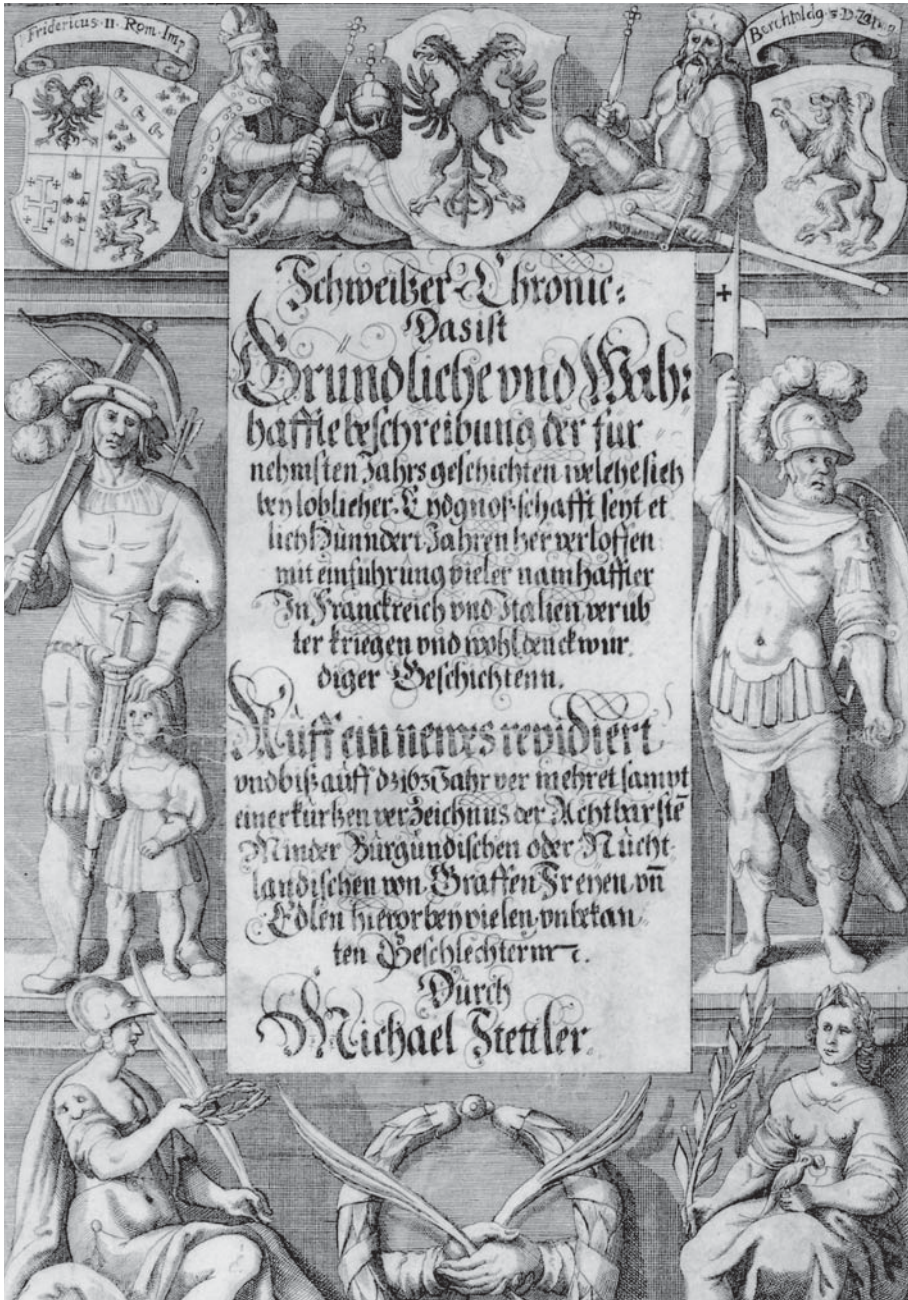 Fridericus · II · Rom · Imp
Berchtoldg · 5 · D · Zäring
Schweitzer-Chronic:
Das ist
Grundliche vnd Wah:
haffte beschreibung der für
nehmsten Jahrs geschichten welche sich
bey loblicher Eydgnoß-schafft seyt et
lich Hünndert Jahren her verloffen
mit einführung vieler namhaffter
In Franckreich vnd Italien verüb
ter kriegen vnd wohl denckwur
diger Geschichtenn.
Auff ein newes revidiert
vnd biß auff dz 1631 Jahr ver mehret sampt
einer kurtzen verzeichnus der Achtbarstē
Minder Burgundischen oder Nücht
landischen von Graffen Freyen vn̄
Edlen hievor bey vielen vnbekan
ten Geschlechternn
Durch
Michael Stettler.